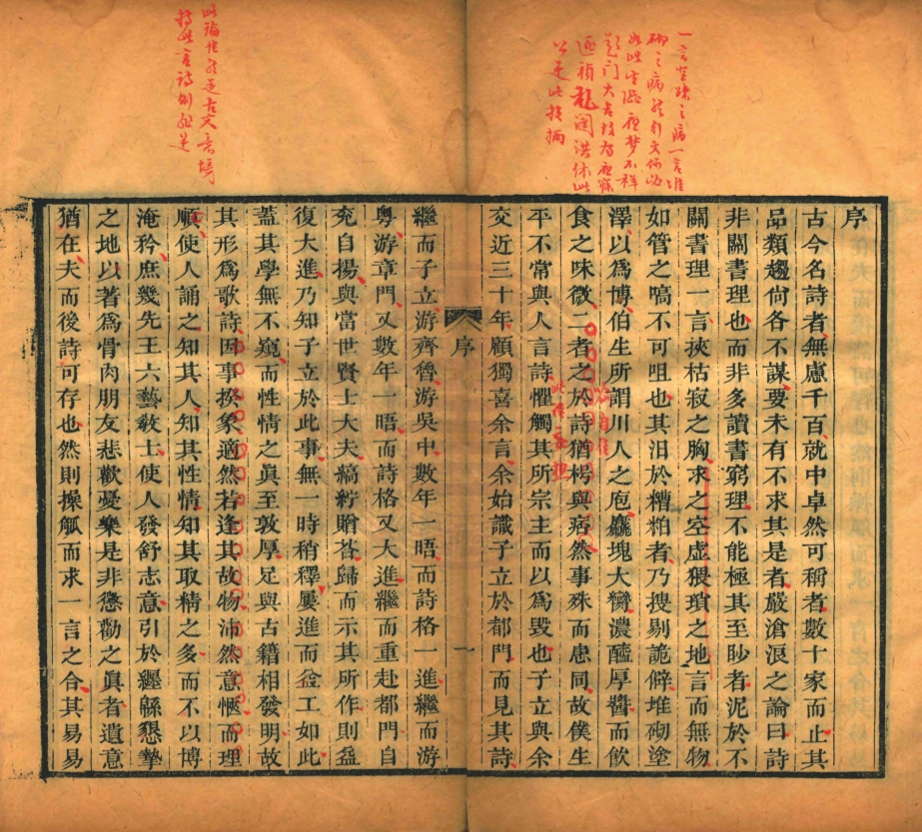 序
古今名詩者無慮千百就中卓然可稱者數十家而止其
品類趨尙各不謀要未有不求其是者嚴滄浪之論曰詩
非關書理也而非多讀書窮理不能極其至眇者泥於不
關書理一言挾枯寂之胸求之空虛猥瑣之地言而無物
如管之嗃不可咀也其汨於糟粕者乃搜剔詭僻堆砌塗
澤以爲博伯生所謂川人之庖麤塊大臠濃醯厚醬而飮
食之味微二者之於詩猶枵與痞然事殊而患同故僕生
平不常與人言詩懼觸其所宗主而以爲毀也子立與余
交近三十年顧獨喜余言余始識子立於都門而見其詩
序
一
繼而子立游齊魯游吳中數年一晤而詩格一進繼而游
粵游章門又數年一晤而詩格又大進繼而重赴都門自
兗自揚與當世賢士大夫縞紵贈荅歸而示其所作則益
復大進乃知子立於此事無一時稍釋屢進而益工如此
蓋其學無不窺而性情之眞至敦厚足與古籍相發明故
其形爲歌詩因事揆象適然若逢其故物沛然意愜而理
順使人誦之知其人知其性情知其取精之多而不以博
淹矜庶幾先王六藝敎士使人發舒志意引於纏緜懇摯
之地以著爲骨肉朋友悲歡憂樂是非懲勸之眞者遺意
猶在夫而後詩可存也然則操觚而求一言之合其易易